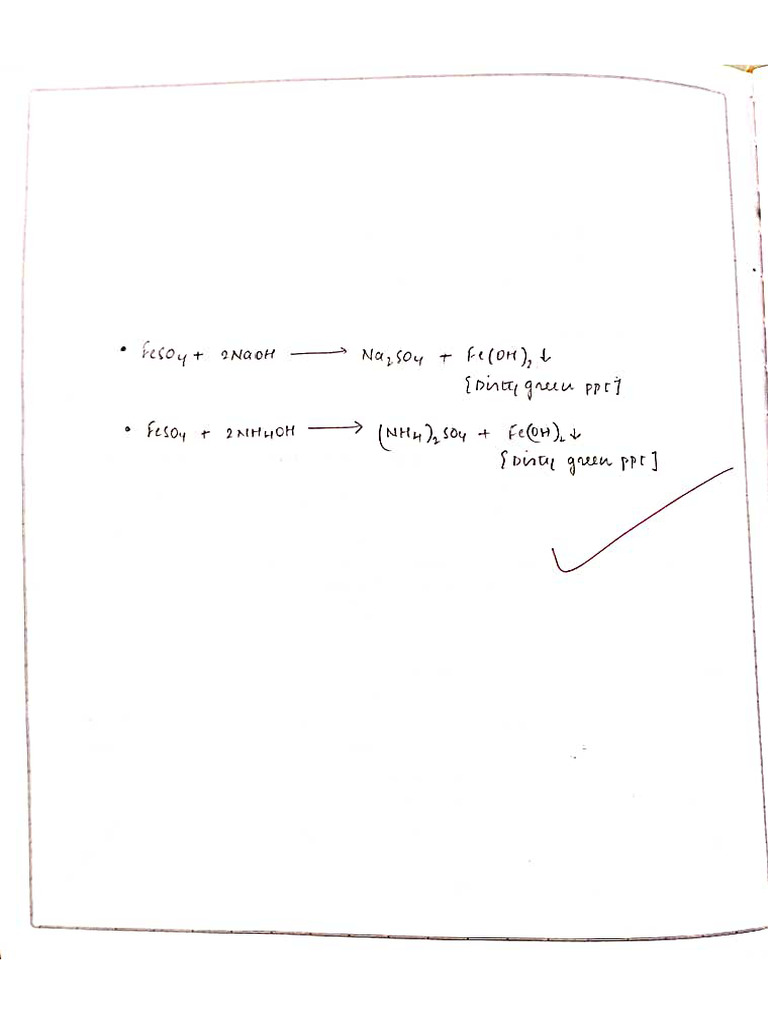 • FeSO4 + 2NaOH ⟶ Na2SO4 + Fe(OH)2↓
[Dirty green ppt]
• FeSO4 + 2NH4OH ⟶ (NH4)2SO4 + Fe(OH)2↓
[Dirty green ppt]